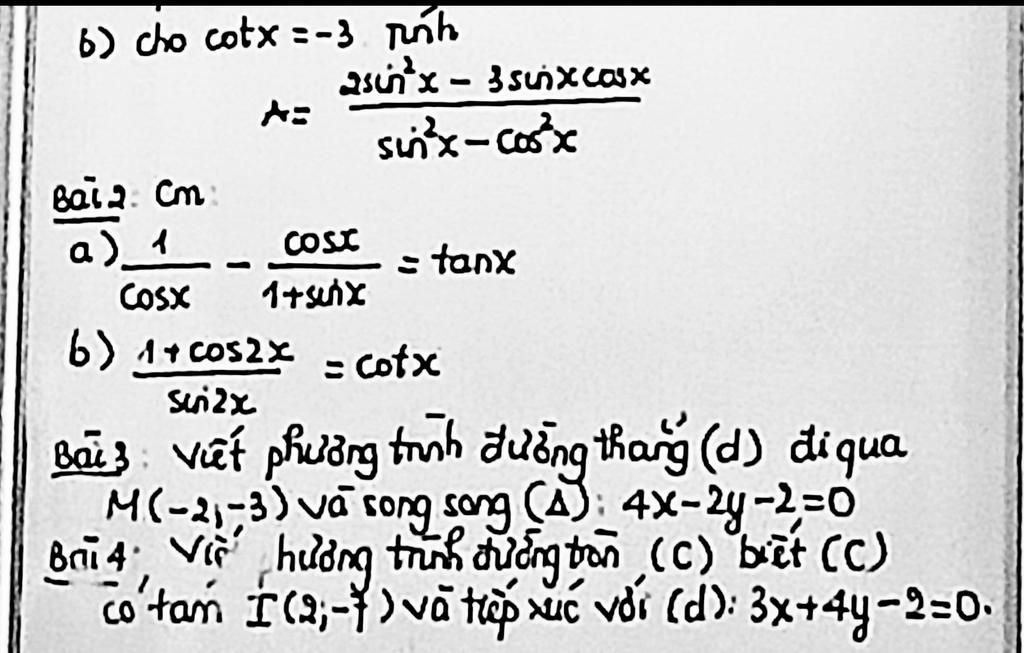 b) cho cotx = -3 Tính
A = (2sin²x - 3sinxcosx) / (sin²x - cos²x)
Bài 2: Cm:
a) 1/cosx - cosx/(1+sinx) = tanx
b) (1+cos2x)/sin2x = cotx
Bài 3: Viết phương trình đường thẳng (d) đi qua
M(-2;-3) và song song (Δ): 4x-2y-2=0
Bài 4: trình đường tròn (C) biết (C)
có tâm I(2;-7) và tiếp xúc với (d): 3x+4y-2=0.